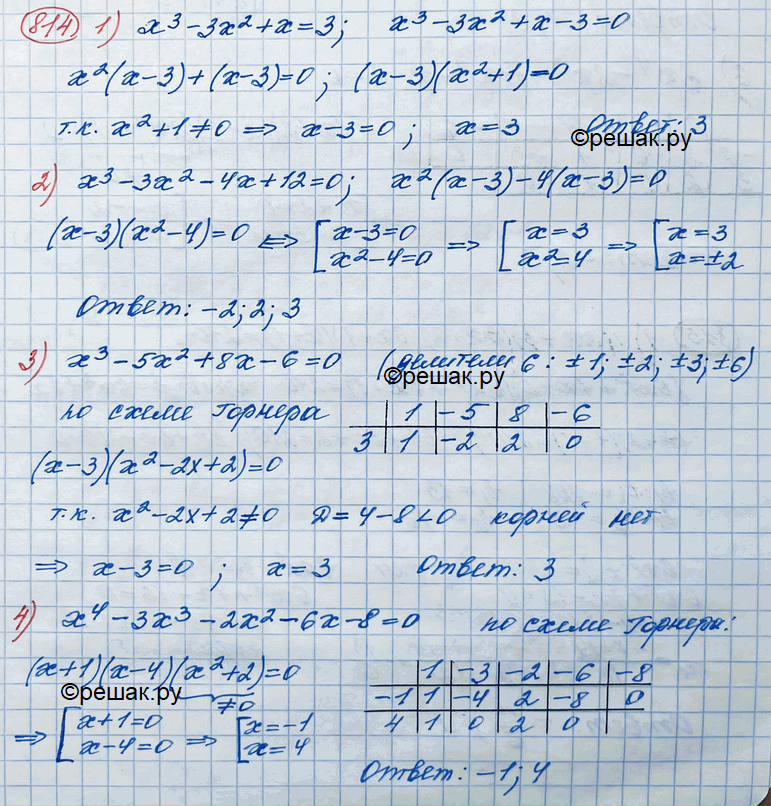 814 1) x³-3x²+x=3; x³-3x²+x-3=0
x²(x-3)+(x-3)=0; (x-3)(x²+1)=0
т.к. x²+1≠0 ⇒ x-3=0; x=3 Ответ: 3
©решак.ру
2) x³-3x²-4x+12=0; x²(x-3)-4(x-3)=0
(x-3)(x²-4)=0 ⇔ [x-3=0 ⇒ [x=3 ⇒ [x=3
x²-4=0 x²=4 x=±2
Ответ: -2; 2; 3
3) x³-5x²+8x-6=0 (делители 6: ±1; ±2; ±3; ±6)
©решак.ру
по схеме Горнера | 1 | -5 | 8 | -6
3 | 1 | -2 | 2 | 0
(x-3)(x²-2x+2)=0
т.к. x²-2x+2≠0 D=4-8<0 корней нет
⇒ x-3=0; x=3 Ответ: 3
4) x⁴-3x³-2x²-6x-8=0 по схеме Горнера:
(x+1)(x-4)(x²+2)=0
≠0
©решак.ру
| 1 | -3 | -2 | -6 | -8
-1 | 1 | -4 | 2 | -8 | 0
4 | 1 | 0 | 2 | 0 |
⇒ [x+1=0 ⇒ [x=-1
x-4=0 x=4
Ответ: -1; 4